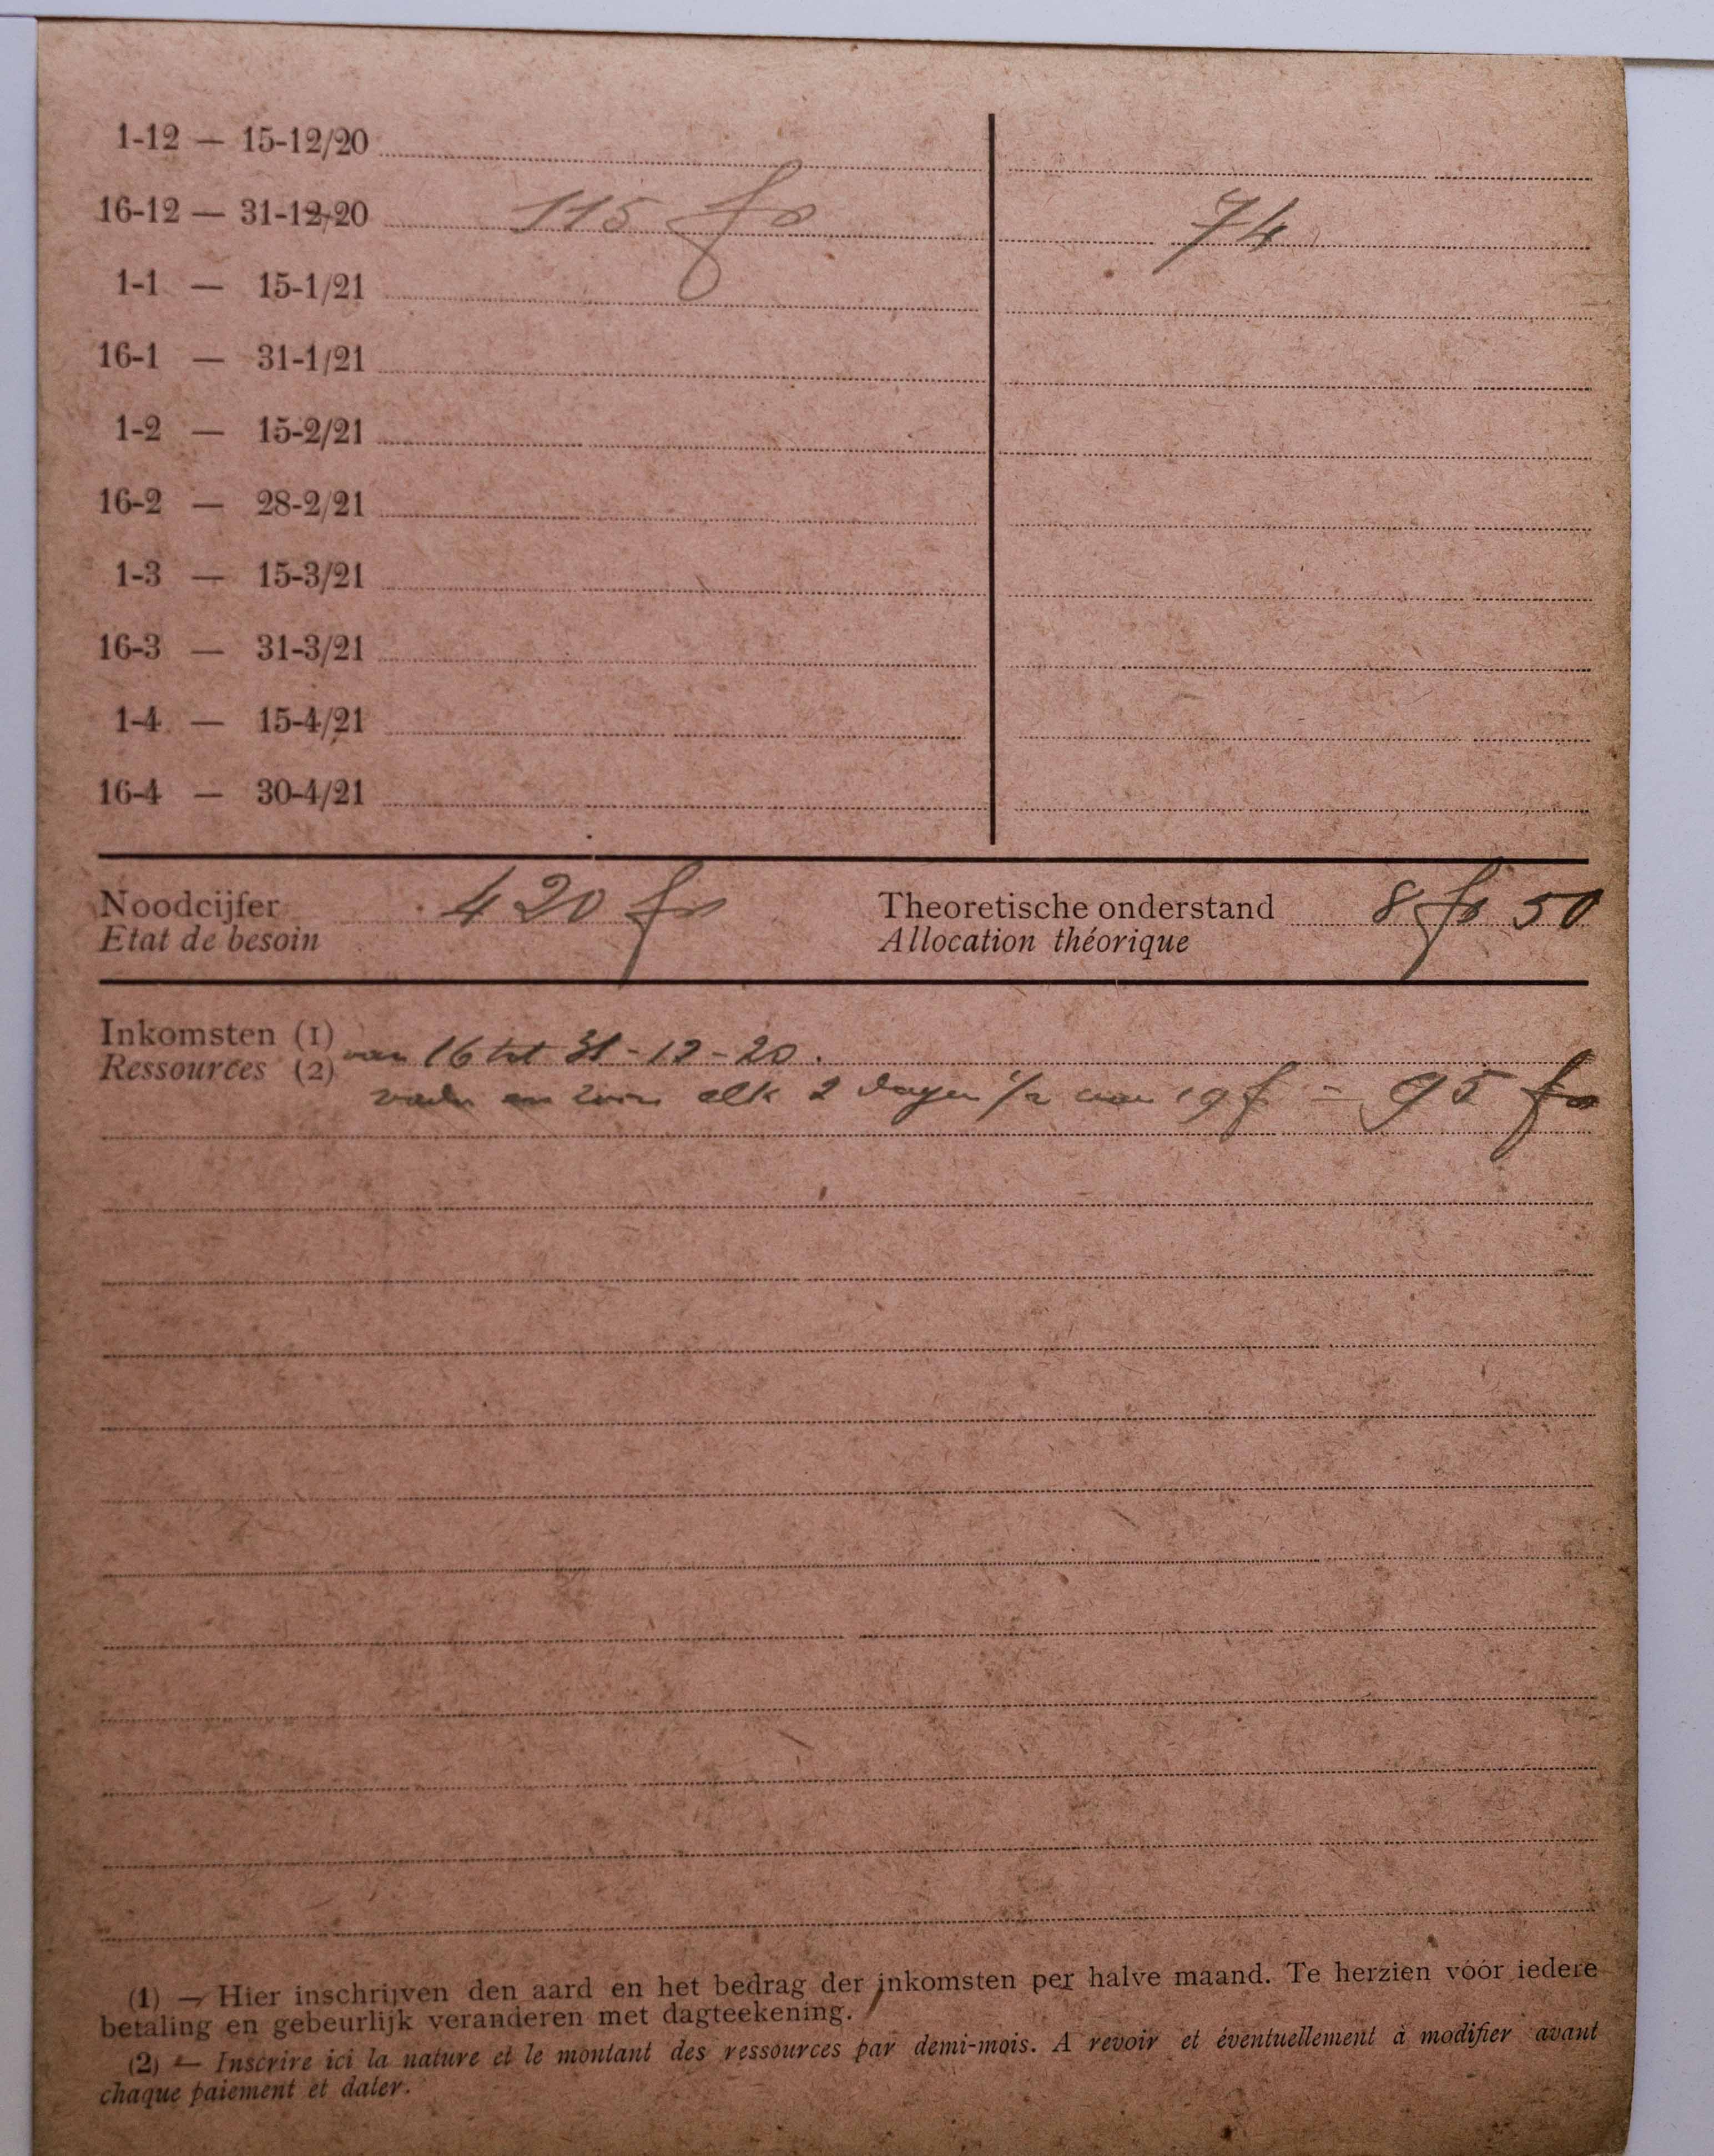 1-12 — 15-12/20
16-12 — 31-12-20 115 fr 74
1-1 — 15-1/21
16-1 — 31-1/21
1-2 — 15-2/21
16-2 — 28-2/21
1-3 — 15-3/21
16-3 — 31-3/21
1-4 — 15-4/21
16-4 — 30-4/21
Noodcijfer 420 fr Theoretische onderstand 8 fr 50
Etat de besoin Allocation théorique
Inkomsten (1) van 16 tot 31-12-20.
Ressources (2)
vader en zoon elk 2 dagen 1/2 aan 19 f = 95 fr
(1) — Hier inschrijven den aard en het bedrag der inkomsten per halve maand. Te herzien vóór iedere
betaling en gebeurlijk veranderen met dagteekening.
(2) — Inscrire ici la nature et le montant des ressources par demi-mois. A revoir et éventuellement à modifier avant
chaque paiement et dater.